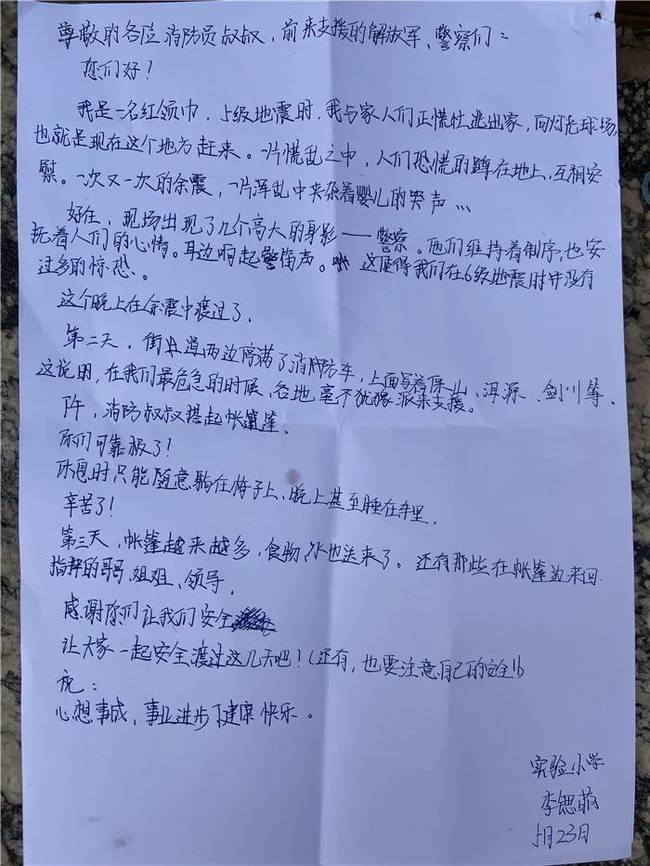 尊敬的各位消防员叔叔，前来支援的解放军、警察们：
您们好！
我是一名红领巾，5级地震时，我与家人们正慌忙逃出家，向灯光球场，
也就是现在这个地方赶来。一片慌乱之中，人们恐慌的蹲在地上，互相安
慰。一次又一次的余震，一片浑乱中夹杂着婴儿的哭声…
好在，现场出现了几个高大的身影——警察。他们维持着制序，也安
抚着人们的心情。耳边响起警笛声。这使得我们在6级地震时并没有
过多的惊恐。
这个晚上在余震中渡过了。
第二天，街道两边停满了消防车，上面写着保山、洱源、剑川等，
这说明，在我们最危急的时候，各地毫不犹豫派来支援。
下午，消防叔叔搭起帐篷。
你们可靠极了！
休息时只能随意躺在椅子上，晚上甚至睡在车里。
辛苦了！
第三天，帐篷越来越多，食物水也送来了。还有那些在帐篷边来回
指挥的哥哥、姐姐、领导，
感谢你们让我们安全
让大家一起安全渡过这几天吧！(还有，也要注意自己的安全!)
祝：
心想事成，事业进步，健康快乐。
实验小学
李思萌
5月23日